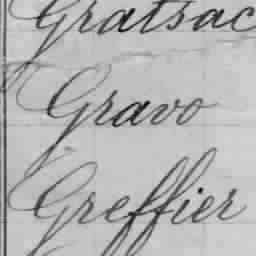 Gratsac
Gravo
Greffier